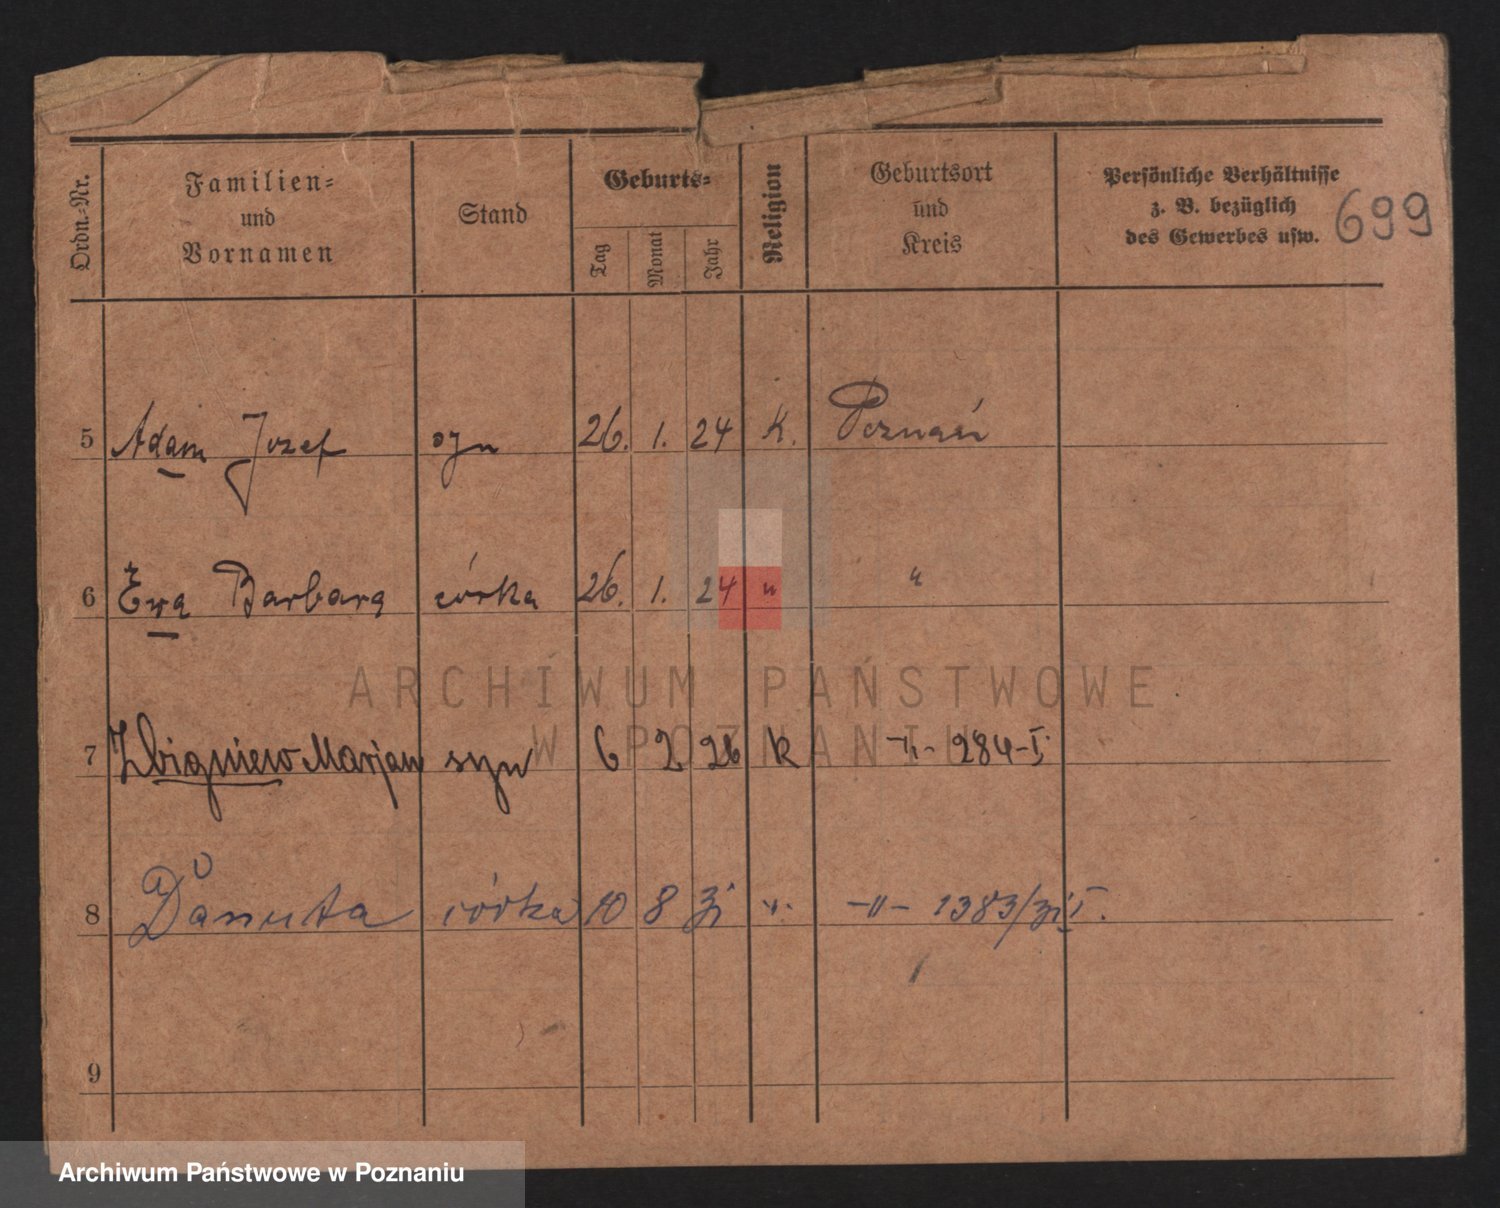 Ordn.-Nr.
Familien-
und
Vornamen
Stand
Geburts-
Tag
Monat
Jahr
Religion
Geburtsort
und
Kreis
Persönliche Verhältnisse
z. B. bezüglich
des Gewerbes usw.
699
5 Adam Jozef syn 26. 1. 24 K. Poznań
6 Ewa Barbara córka 26. 1. 24 " "
7 Zbigniew Marjan syn 6 2 26 k -"- 284-I.
8 Danuta córka 10 8 31 " -"- 1383/31 I.
9
ARCHIWUM PAŃSTWOWE
W POZNANIU
Archiwum Państwowe w Poznaniu